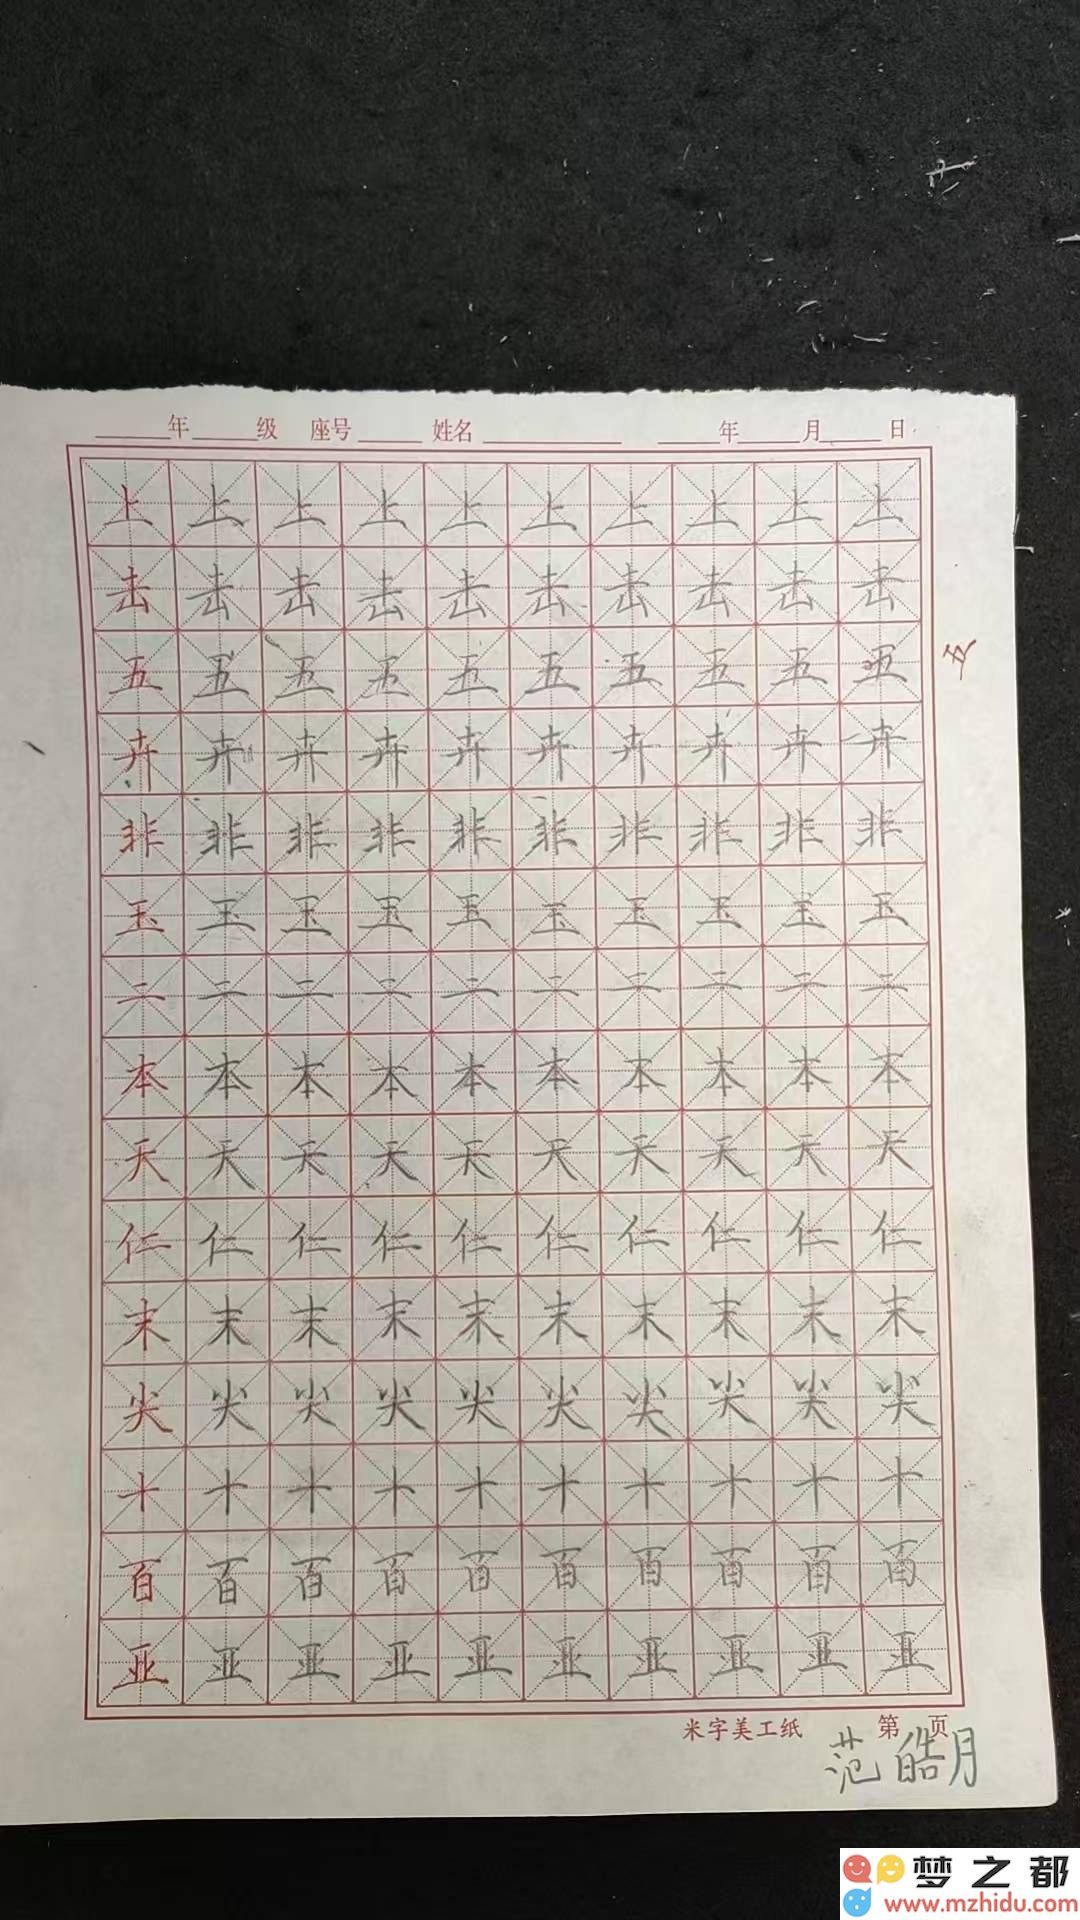 年 级 座号 姓名 年 月 日
上 上 上 上 上 上 上 上 上 上
击 击 击 击 击 击 击 击 击 击
五 五 五 五 五 五 五 五 五 五
卉 卉 卉 卉 卉 卉 卉 卉 卉 卉
非 非 非 非 非 非 非 非 非 非
玉 玉 玉 玉 玉 玉 玉 玉 玉 玉
二 二 二 二 二 二 二 二 二 二
本 本 本 本 本 本 本 本 本 本
天 天 天 天 天 天 天 天 天 天
仁 仁 仁 仁 仁 仁 仁 仁 仁 仁
末 末 末 末 末 末 末 末 末 末
尖 尖 尖 尖 尖 尖 尖 尖 尖 尖
十 十 十 十 十 十 十 十 十 十
百 百 百 百 百 百 百 百 百 百
亚 亚 亚 亚 亚 亚 亚 亚 亚 亚
米字美工纸 第 页
范皓月
梦之都
www.mzhidu.com